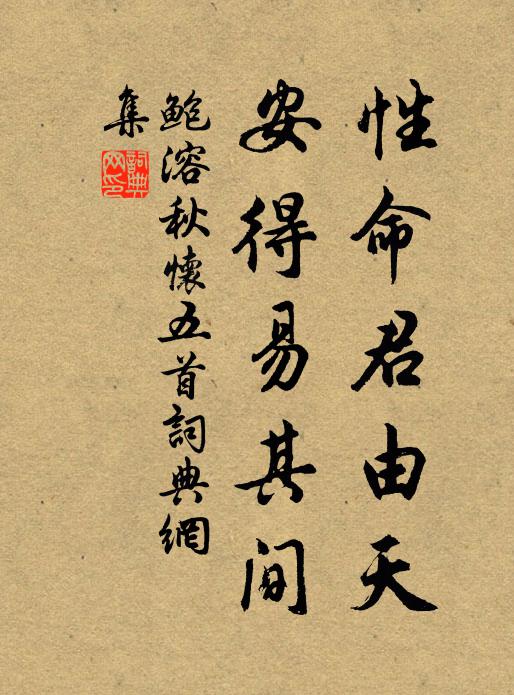 性命君由天
安得易其间
鲍溶秋懷五首詞典網
集
詞典網印